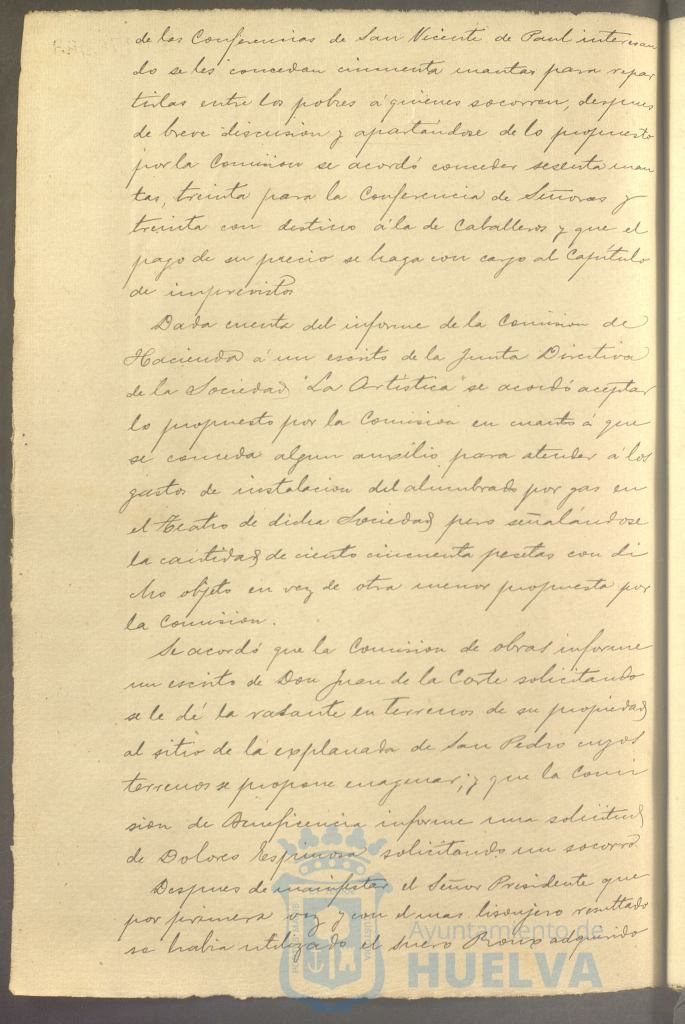 de las Conferencias de San Vicente de Paul interesan
do se les concedan cincuenta mantas para repar
tirlas entre los pobres á quienes socorren, despues
de breve discusion y apartándose de lo propuesto
por la Comision se acordó conceder sesenta man
tas, treinta para la Conferencia de Señoras y
treinta con destino á la de Caballeros y que el
pago de su precio se haga con cargo al Capítulo
de imprevistos
Dada cuenta del informe de la Comision de
Hacienda á un escrito de la Junta Directiva
de la Sociedad "La Artística" se acordó aceptar
lo propuesto por la Comision en cuanto á que
se conceda algun auxilio para atender á los
gastos de instalacion del alumbrado por gas en
el Teatro de dicha Sociedad pero señalándose
la cantidad de ciento cincuenta pesetas con di
cho objeto en vez de otra menor propuesta por
la Comision.
Se acordó que la Comision de obras informe
un escrito de Don Juan de la Corte solicitando
se le dé la rasante en terrenos de su propiedad
al sitio de la explanada de San Pedro cuyos
terrenos se propone enagenar; y que la Comi
sion de Beneficencia informe una solicitud
de Dolores Espinosa solicitando un socorro
Despues de manifestar el Señor Presidente que
por primera vez y con el mas lisonjero resultado
se habia utilizado el suero Roux adquirido
Ayuntamiento de
HUELVA